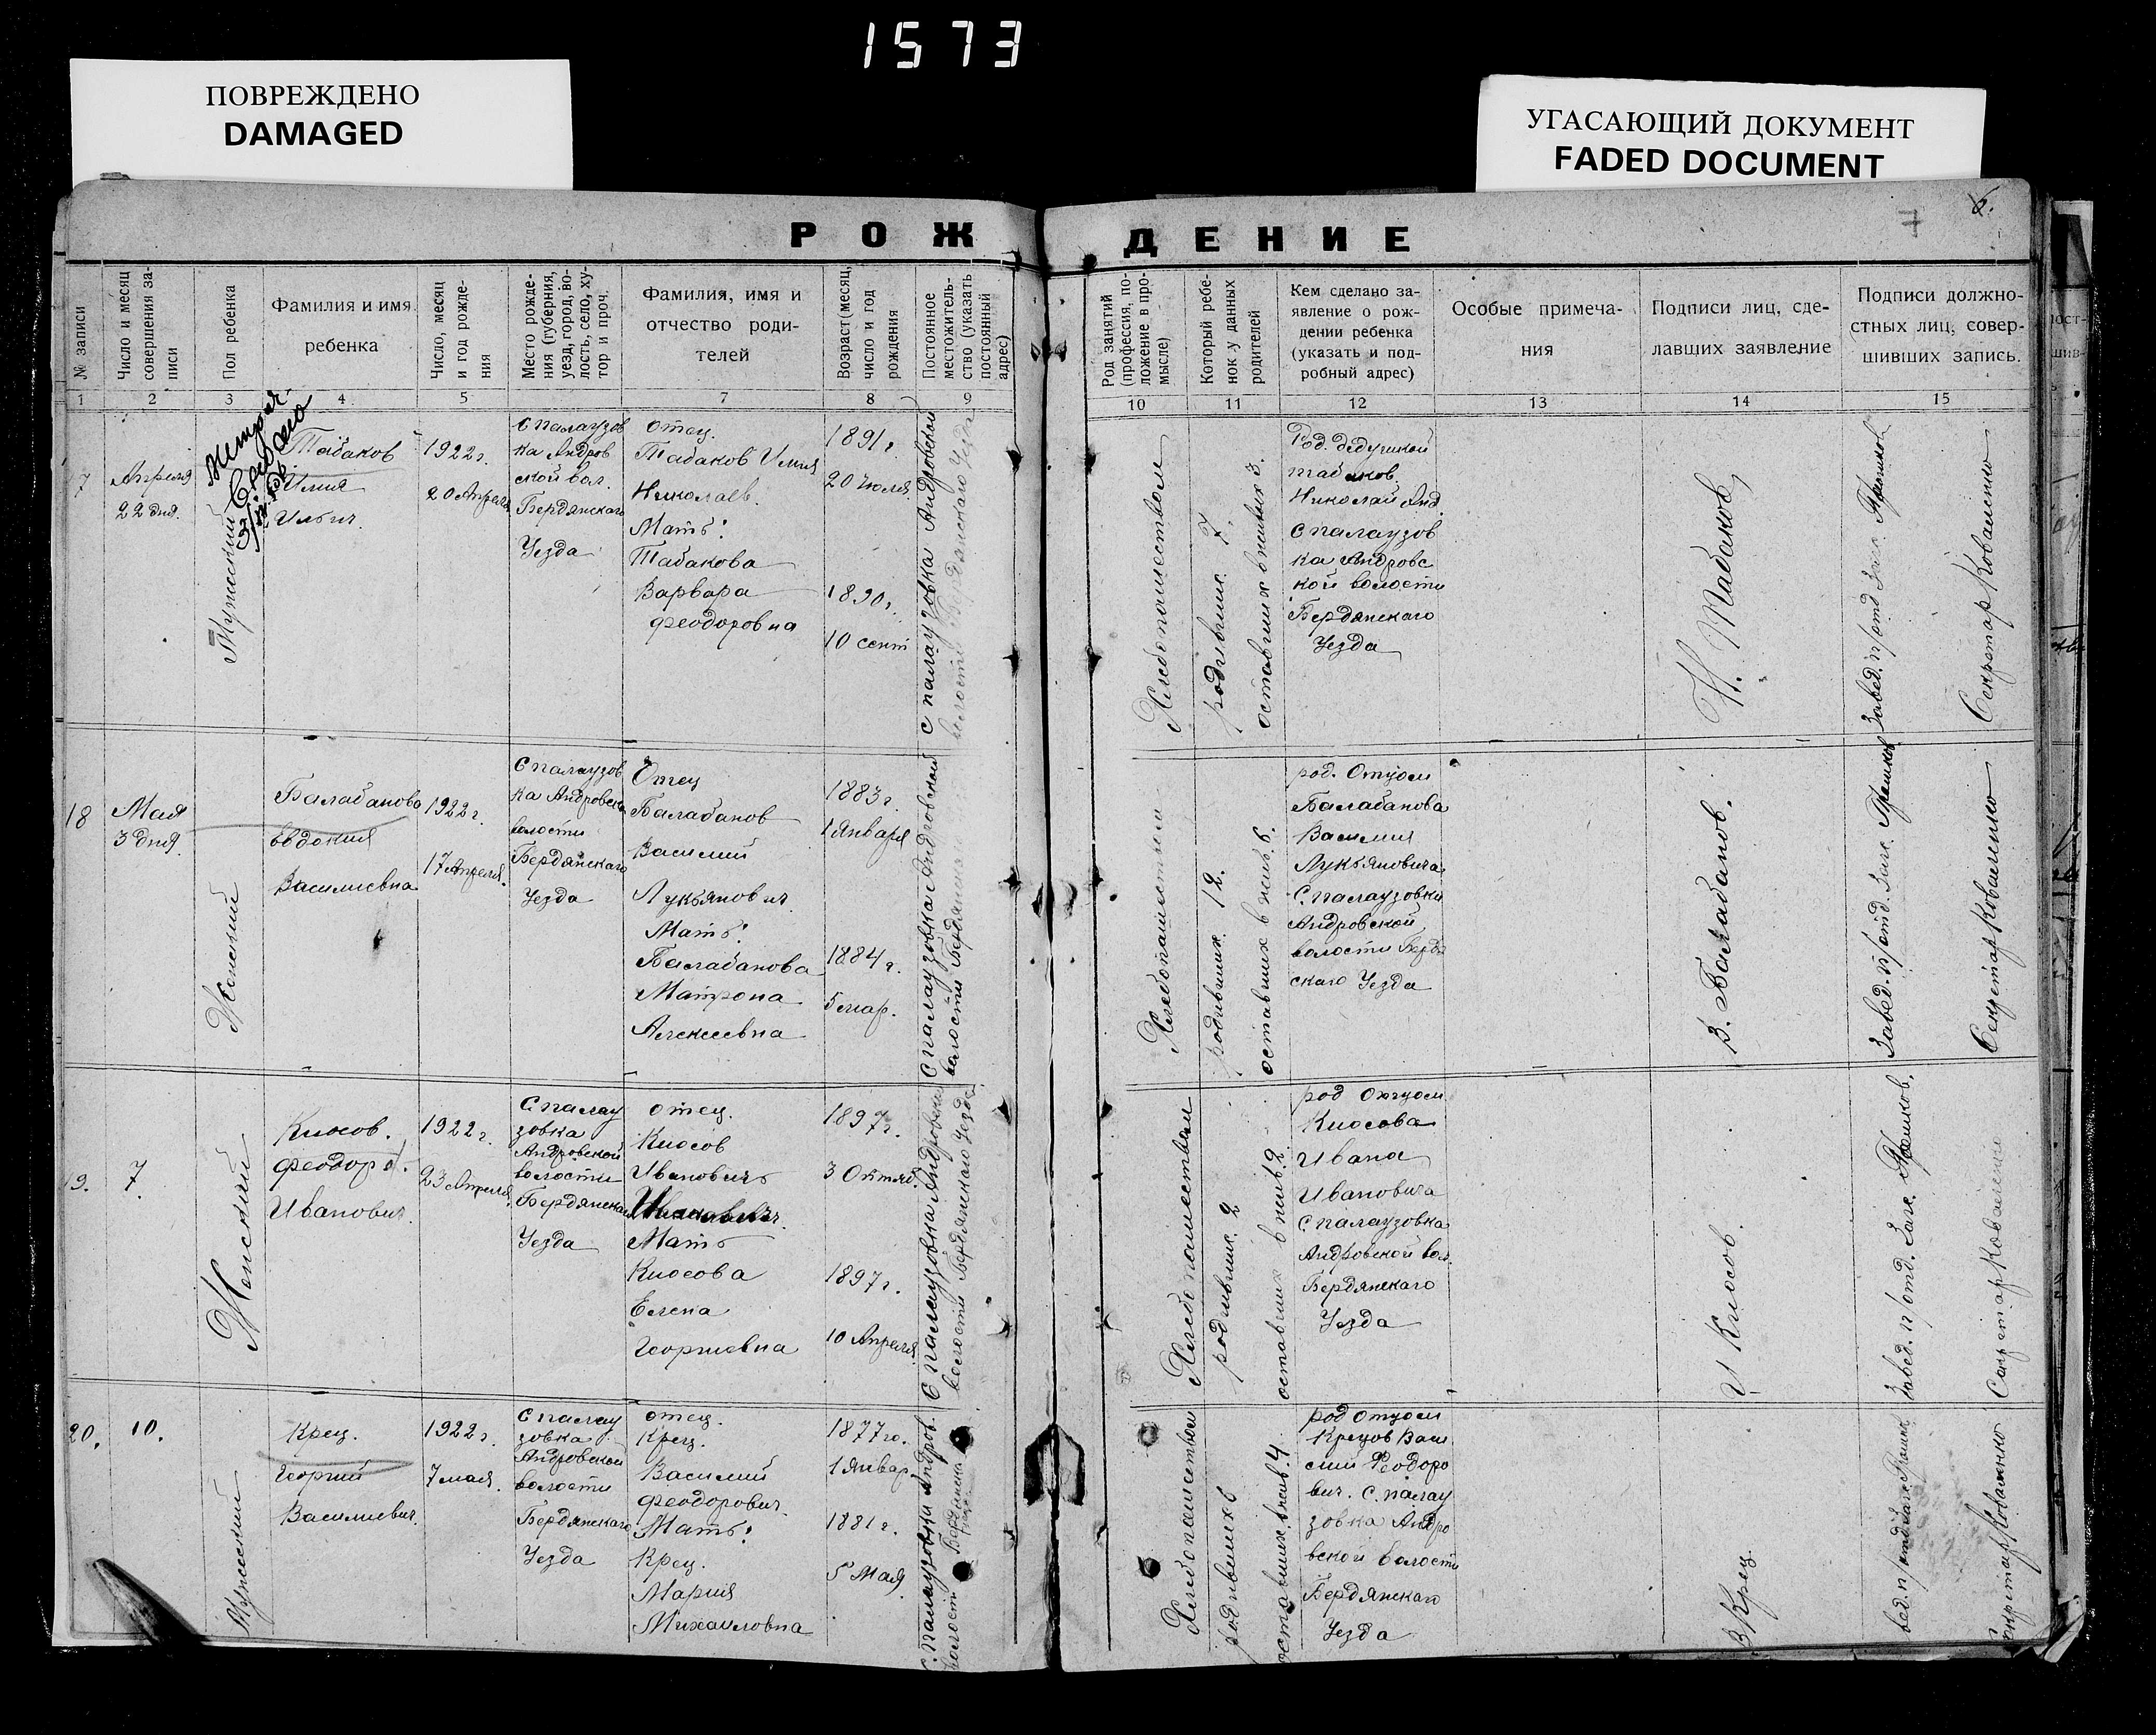 1573
ПОВРЕЖДЕНО
DAMAGED
УГАСАЮЩИЙ ДОКУМЕНТ
FADED DOCUMENT
7
6.
РОЖДЕНИЕ
№ записи
Число и месяц
совершения за-
писи
Пол ребенка
Фамилия и имя
ребенка
Число, месяц
и год рожде-
ния
Место рожде-
ния (губерния,
уезд, город, во-
лость, село, ху-
тор и проч.
Фамилия, имя и
отчество роди-
телей
Возраст (месяц,
число и год
рождения
Постоянное
местожитель-
ство (указать
постоянный
адрес)
Род занятий
(профессия, по-
ложение в про-
мысле)
Который ребе-
нок у данных
родителей
Кем сделано за-
явление о рож-
дении ребенка
(указать и под-
робный адрес)
Особые примеча-
ния
Подписи лиц, сде-
лавших заявление
Подписи должно-
стных лиц, совер-
шивших запись.
1 2 3 4 5 6 7 8 9 10 11 12 13 14 15
7
Апреля
22 дня.
Мужеский
Табаков
Илия
Ильич.
1922 г.
20 Апреля
С палаузов
ка Андров
ской вол.
Бердянскаго
Уезда
отец.
Табаков Илия
Николаев.
Мать:
Табакова
Варвара
Феодоровна
1891 г
20 Июля
1890 г.
10 сент
С палаузовка Андровской
волости Бердянскаго Уезда
Хлебопашеством
родивших 7.
оставших в живих 3.
Род. дедушкой
табаков
Николай Анд.
С палаузов
ка Андровс
кой волости
Бердянскаго
Уезда
Н. Табаков
Завед. п/отд. Загс.
Секретар Коваленко
18
Мая
3 дня.
Женский
Балабанова
Евдокия
Василиевна
1922 г.
17 Апреля.
С палаузов
ка Андровск
волости
Бердянскаго
Уезда
Отец
Балабанов
Василий
Лукьянович.
Мать:
Балабанова
Матрона
Алексеевна
1883 г
1 Января
1884 г.
5 мар.
С палаузовка Андровской
волости Бердянскаго
Хлебопашеством
родивших 12.
оставших в жив. 6.
род. Отцом
Балабанова
Василия
Лукьяновича
С. палаузовки
Андровской
волости Бердя
скаго Уезда
В. Балабанов.
Завед. п/отд. Загс.
Секретар Коваленко
19.
7.
Женский
Киосов.
Феодор
Иванович.
1922 г.
23 Апреля.
С палау
зовка
Андровской
волости
Бердянскаго
Уезда
отец.
Киосов
Иванович
Мать
Киосова
Елена
Георгиевна
1897 г.
3 Октяб.
1897 г.
10 Апреля.
С палаузовка Андровской
волости Бердянскаго Уезда
Хлебопашеством
родивших 2
оставших в жив. 2
род Отцом
Киосова
Ивана
Ивановича
с. палаузовка
Андровской вол.
Бердянскаго
Уезда
И Киосов.
Завед. п/отд. Загс.
Секретар Коваленко
20.
10.
Мужеский
Крец.
Георгий
Василиевич.
1922 г.
7 мая.
С палау
зовка
Андровской
волости
Бердянскаго
Уезда
отец.
Крец.
Василий
Феодорович.
Мать:
Крец.
Мария
Михаиловна
1877 го.
1 Январ
1881 г.
5 Мая.
С. палаузовка Андров.
волост Бердянска
Хлебопашеством
родивших 6
оставших в жив. 4
род Отцом
Крецов Васи
лий Феодоро
вич. С. палау
зовка Андро
вской волости
Бердянскаго
Уезда
В Крец.
Секретар Коваленко